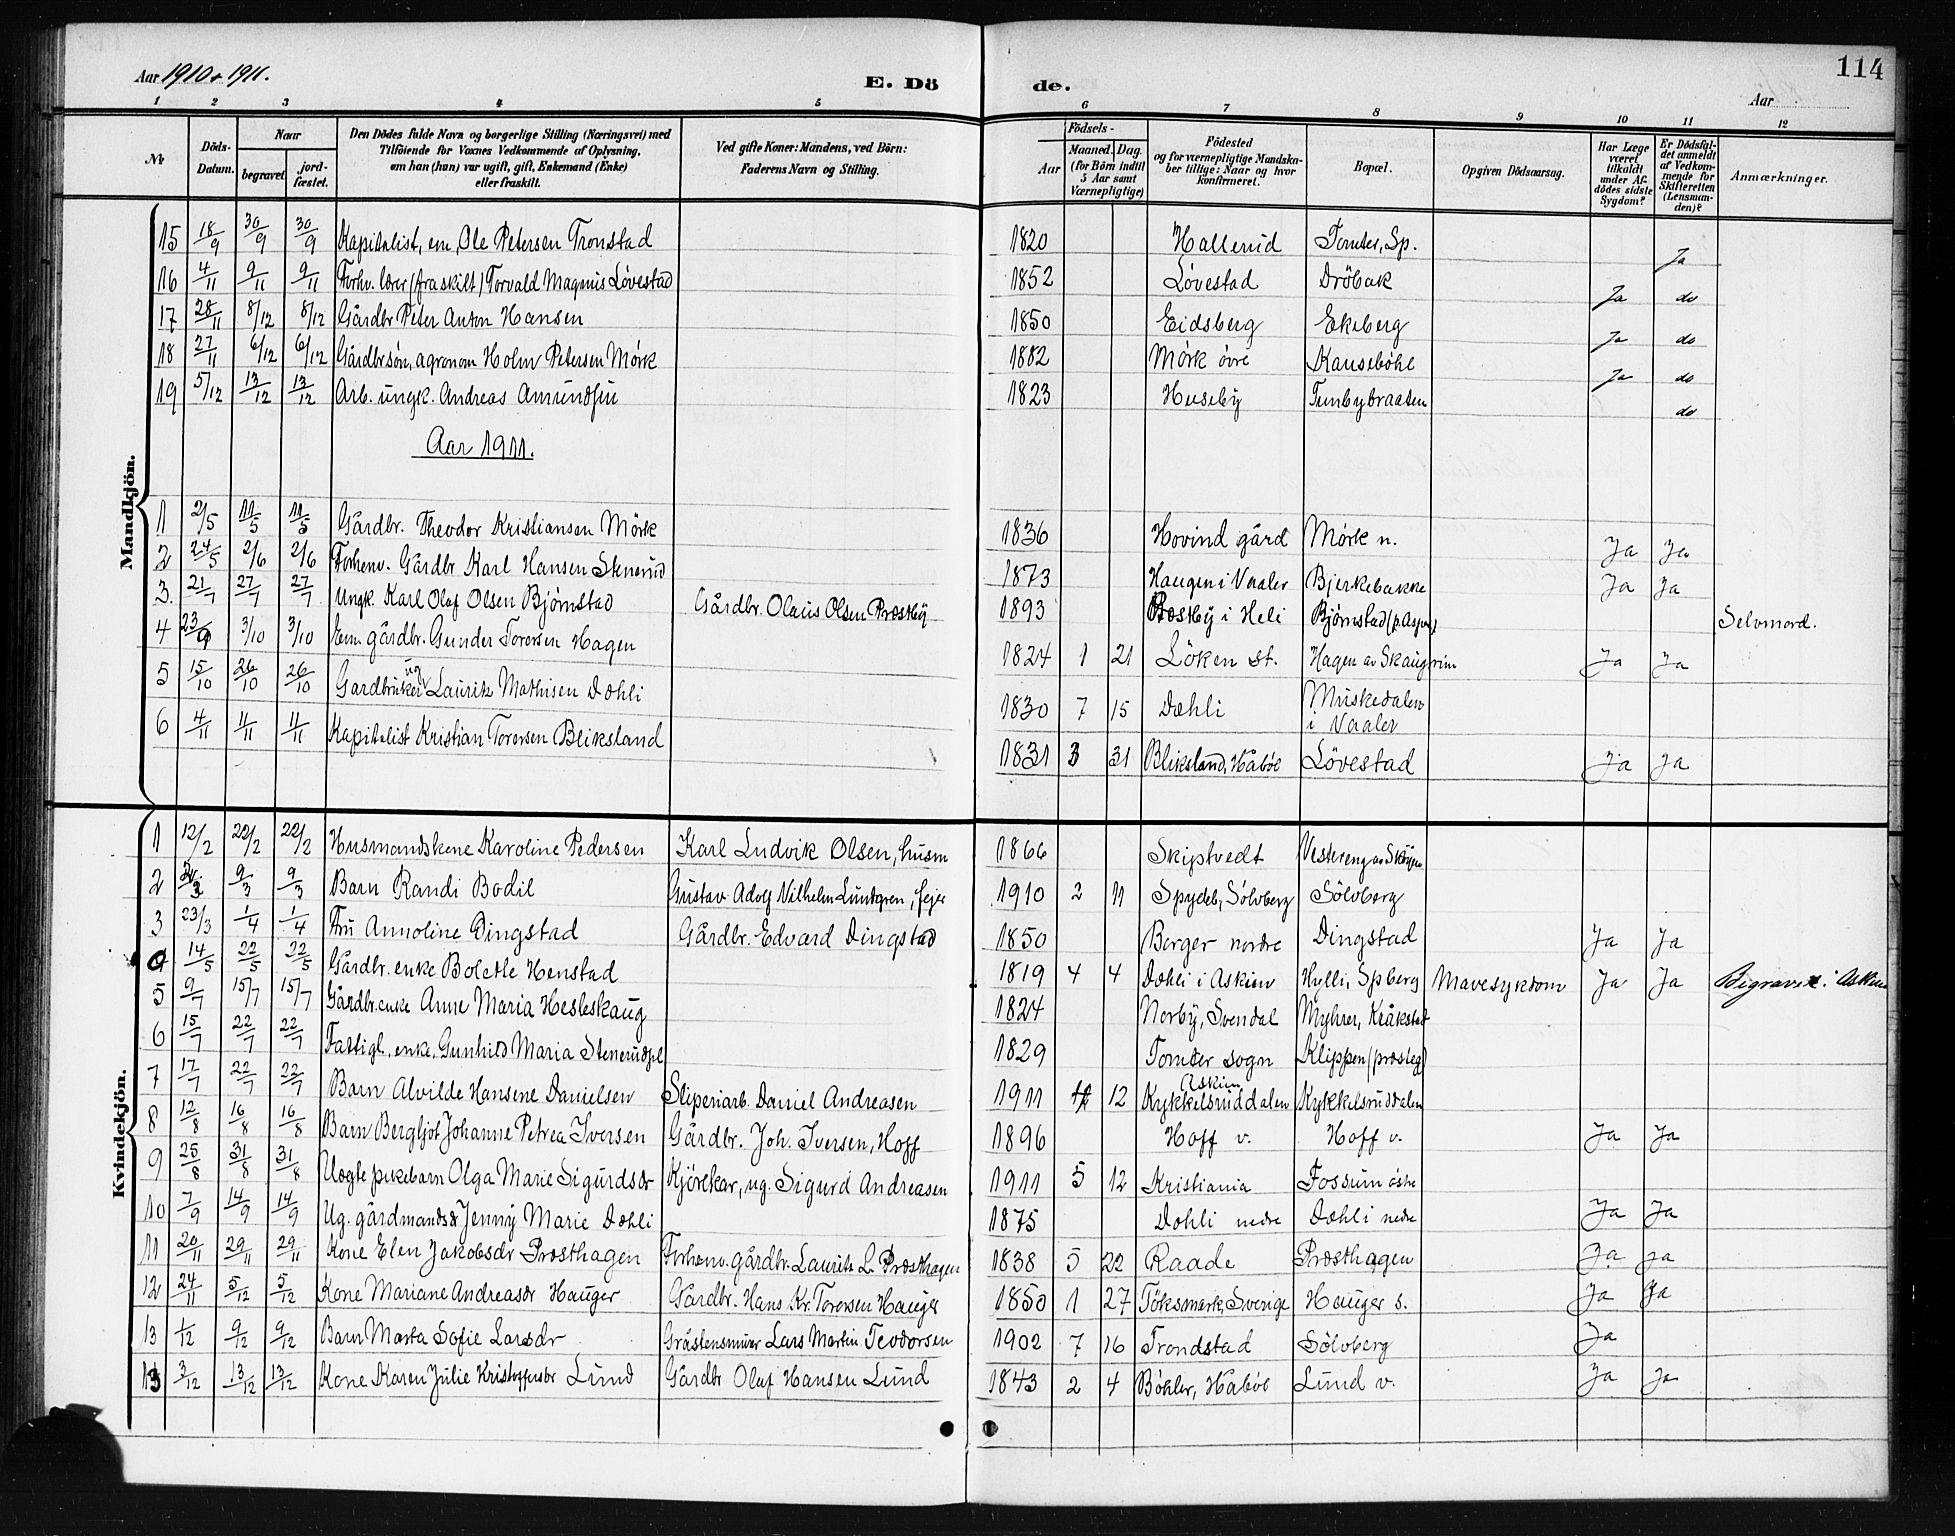 Aar 1910 & 1911.
E. Dö
de.
114
Aar
1 2 3 4 5 6 7 8 9 10 11 12
No
Döds-Datum.
Naar
begravet
jord-fæstet.
Den Dödes fulde Navn og borgerlige Stilling (Næringsvei) med
Tilföiende for Voxnes Vedkommende af Oplysning,
om han (hun) var ugift, gift, Enkemand (Enke)
eller fraskilt.
Ved gifte Koner: Mandens, ved Börn:
Faderens Navn og Stilling.
Födsels-
Aar
Maaned. Dag.
(for Börn indtil
5 Aar samt
Værnepligtige)
Födested
og for værnepligtige Mandska-
ber tillige: Naar og hvor
konfirmeret.
Bopæl.
Opgiven Dödsaarsag.
Har Læge
været
tilkaldt
under Af-
dödes sidste
Sygdom?
Er Dödsfal-
det anmeldt
af Vedkom-
mende for
Skifteretten
(Lensman-
den)?
Anmærkninger.
Mandkjön.
15 18/9 30/9 30/9 Kapitalist, em, Ole Petersen Tronstad 1820 Hallerud Tomter, Sp. Ja
16 4/11 9/11 9/11 Forhv. lærer (fraskilt) Torvald Magnus Løvestad 1852 Løvestad Dröbak Ja do
17 28/11 8/12 8/12 Gårdbr Peter Anton Hansen 1850 Eidsberg Ekeberg Ja do
18 27/11 6/12 6/12 Gårdbrsøn, agronom Holm Petersen Mörk 1882 Mörk övre Kauseböhl Ja do
19 5/12 13/12 13/12 Arb. ungk. Andreas Amundsen 1823 Huseby Tunbybraaten do
Aar 1911.
1 2/5 11/5 11/5 Gårdbr. Theodor Kristiansen Mörk 1836 Hovind gård Mörk n. Ja Ja
2 24/5 2/6 2/6 Forhenv. Gårdbr Karl Hansen Stenerud 1873 Haugen i Vaaler Bjerkebakke Ja Ja
3. 21/7 27/7 27/7 Ungk. Karl Olaf Olsen Bjørnstad Gårdbr. Olaus Olsen Præstby 1893 Præstby i Heli Bjørnstad Selvmord.
4 23/9 3/10 3/10 Em gårdbr. Gunder Torersen Hagen 1824 1 21 Löken st. Hagen av Skaugrim Ja Ja
5 15/10 26/10 26/10 Gardbruker ug Lauritz Mathisen Dæhli 1830 7 15 Dæhli Muskedalen
i Vaaler
6 4/11 11/11 11/11 Kapitalist Kristian Torersen Bliksland 1831 3 31 Bliksland, Håböl Lövestad Ja Ja
Kvindekjön.
1 12/2 22/2 22/2 Husmandskone Karoline Pedersen Karl Ludvik Olsen, husm 1866 Skiptvedt
2 9/3 9/3 Barn Randi Bodil Gustav Adolf Vilhelm Lundgren, fejer 1910 2 11 Spydeb, Sölvberg Sölvberg
3 23/3 1/4 1/4 Fru Annoline Dingstad Gårdbr. Edvard Dingstad 1850 Berger nordre Dingstad Ja Ja
4 14/5 22/5 22/5 Gårdbr. enke Bolette Henstad 1819 4 4 Dæhli i Askim Hylli, Spberg Mavesykdom Ja Ja Begravet i Askim
5 9/7 15/7 15/7 Gårdbr. enke Anne Maria Hesteskaug 1824 Norby, Svendal Myhrer, Kråkstad
6 15/7 22/7 22/7 Fattigl. enke, Gunhild Maria Stenerudpl 1829 Tomter sogn Klippen (præsteg)
7 17/7 22/7 22/7 Barn Alvilde Hansene Danielsen Sliperiarb. Daniel Andreasen 1911 12 Askim Kykkelsruddalen Kykkelsruddalen
8 12/8 16/8 16/8 Barn Bergljot Johanne Petrea Iversen Gårdbr. Joh. Iversen, Hoff 1896 Hoff v. Hoff v. Ja Ja
9 25/8 31/8 31/8 Uægte pikebarn Olga Marie Sigurdsdr Kjörekar, ug. Sigurd Andreasen 1911 5 12 Kristiania Fossum östre
10 7/9 14/9 14/9 Ug. gårdmandsdr Jenny Marie Dæhli 1875 Dæhli nedre Dæhli nedre Ja Ja
11 20/11 29/11 29/11 Kone Elen Jakobsdr Præsthagen Forhenv. gårdbr. Lauritz L. Præsthagen 1838 5 22 Raade Præsthagen Ja Ja
12 24/11 5/12 5/12 Kone Mariane Andreasdr Hauger Gårdbr. Hans Kr. Torersen Hauger 1850 1 27 Töksmark, Sverige Hauger s. Ja Ja
13 1/12 9/12 9/12 Barn Marta Sofie Larsdr Gråstensmurer Lars Martin Teodorsen 1902 7 16 Trondstad Sölvberg Ja
3/12 13/12 13/12 Kone Karen Julie Kristoffersdr Lund Gårdbr Oluf Hansen Lund 1843 2 4 Böhler, Håböl Lund v. Ja Ja